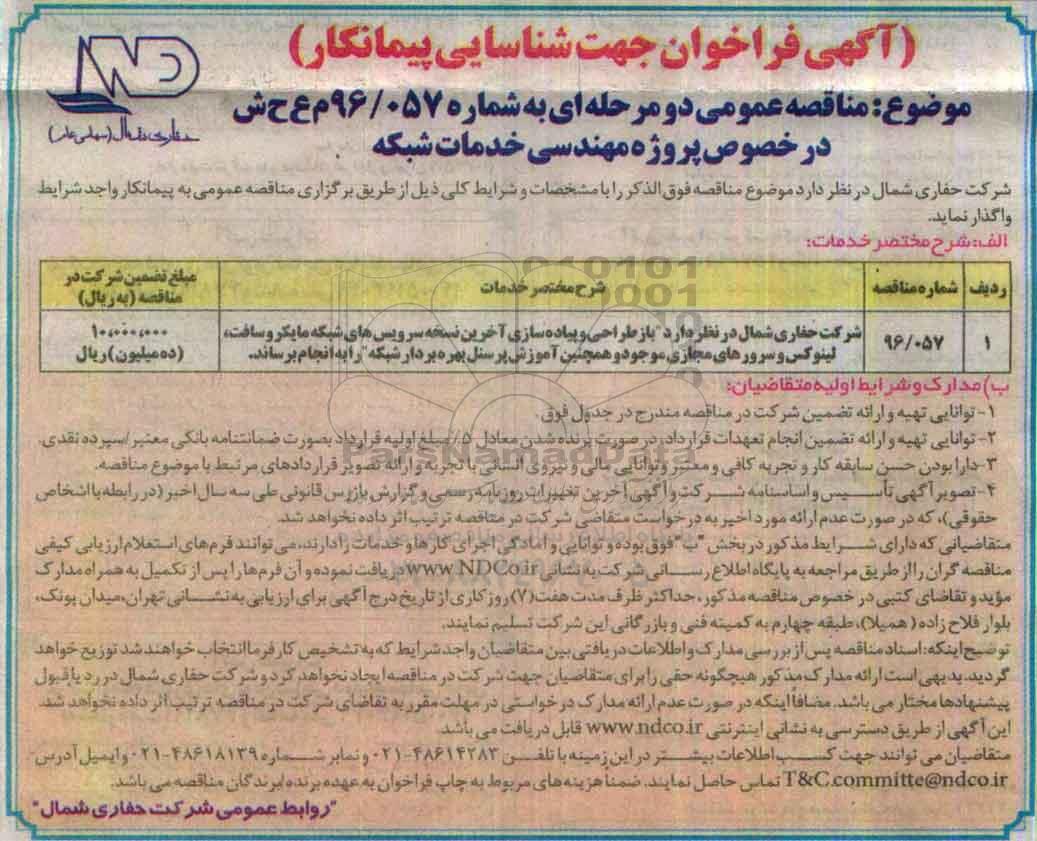 (آگهی فراخوان جهت شناسایی پیمانکار)
ND
حفاری شمال (سهامی عام)
موضوع: مناقصه عمومی دو مرحله ای به شماره ۹۶/۰۵۷م ع ح ش
در خصوص پروژه مهندسی خدمات شبکه
شرکت حفاری شمال در نظر دارد موضوع مناقصه فوق الذکر را با مشخصات و شرایط کلی ذیل از طریق برگزاری مناقصه عمومی به پیمانکار واجد شرایط
واگذار نماید.
الف: شرح مختصر خدمات:
ردیف شماره مناقصه شرح مختصر خدمات مبلغ تضمین شرکت در
مناقصه (به ریال)
۱ ۹۶/۰۵۷ شرکت حفاری شمال در نظر دارد "باز طراحی و پیاده سازی آخرین نسخه سرویس های شبکه مایکروسافت، ۱۰،۰۰۰،۰۰۰
لینوکس و سرور های مجازی موجود و همچنین آموزش پرسنل بهره بردار شبکه" را به انجام برساند. (ده میلیون) ریال
ب) مدارک و شرایط اولیه متقاضیان:
۱- توانایی تهیه و ارائه تضمین شرکت در مناقصه مندرج در جدول فوق.
۲- توانایی تهیه و ارائه تضمین انجام تعهدات قرارداد، در صورت برنده شدن معادل ۵٪ مبلغ اولیه قرارداد بصورت ضمانتنامه بانکی معتبر/سپرده نقدی.
۳- دارا بودن حسن سابقه کار و تجربه کافی و معتبر و توانایی مالی و نیروی انسانی با تجربه و ارائه تصویر قراردادهای مرتبط با موضوع مناقصه.
۴- تصویر آگهی تأسیس و اساسنامه شرکت و آگهی آخرین تغییرات روزنامه رسمی و گزارش بازرس قانونی طی سه سال اخیر (در رابطه با اشخاص
حقوقی)، که در صورت عدم ارائه مورد اخیر به درخواست متقاضی شرکت در مناقصه ترتیب اثر داده نخواهد شد.
متقاضیانی که دارای شرایط مذکور در بخش "ب" فوق بوده و توانایی و آمادگی اجرای کارها و خدمات را دارند، می توانند فرم های استعلام ارزیابی کیفی
مناقصه گران را از طریق مراجعه به پایگاه اطلاع رسانی شرکت به نشانی www.NDCo.ir دریافت نموده و آن فرم ها را پس از تکمیل به همراه مدارک
مؤید و تقاضای کتبی در خصوص مناقصه مذکور، حداکثر ظرف مدت هفت (۷) روز کاری از تاریخ درج آگهی برای ارزیابی به نشانی تهران، میدان پونک،
بلوار فلاح زاده (همیلا)، طبقه چهارم به کمیته فنی و بازرگانی این شرکت تسلیم نمایند.
توضیح اینکه: اسناد مناقصه پس از بررسی مدارک و اطلاعات دریافتی بین متقاضیان واجد شرایط که به تشخیص کارفرما انتخاب خواهند شد توزیع خواهد
گردید. بدیهی است ارائه مدارک مذکور هیچگونه حقی را برای متقاضیان جهت شرکت در مناقصه ایجاد نخواهد کرد و شرکت حفاری شمال در رد یا قبول
پیشنهادها مختار می باشد. مضافاً اینکه در صورت عدم ارائه مدارک درخواستی در مهلت مقرر به تقاضای شرکت در مناقصه ترتیب اثر داده نخواهد شد.
این آگهی از طریق دسترسی به نشانی اینترنتی www.ndco.ir قابل دریافت می باشد.
متقاضیان می توانند جهت کسب اطلاعات بیشتر در این زمینه با تلفن ۰۲۱-۴۸۶۱۴۲۸۳ و نمابر شماره ۰۲۱-۴۸۶۱۸۱۳۹ و ایمیل آدرس
T&C.committe@ndco.ir تماس حاصل نمایند. ضمناً هزینه های مربوط به چاپ فراخوان به عهده برنده/برندگان مناقصه می باشد.
"روابط عمومی شرکت حفاری شمال"
ParsNamadData